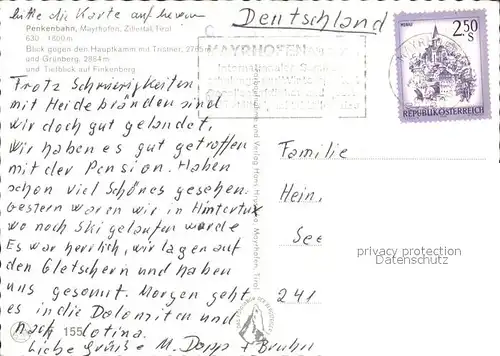 bitte die Karte auf
Deutschland
Penkenbahn, Mayrhofen, Zillertal, Tirol
630 - 1800 m
Blick gegen den Hauptkamm mit Tristner, 2765 m
und Grünberg, 2864 m
und Tiefblick auf Finkenberg
MAYRHOFEN
2.50
S
REPUBLIK ÖSTERREICH
Trotz Schwierigkeiten
mit Heidebränden sind
wir doch gut gelandet,
Wir haben es gut getroffen
mit der Pension. Haben
schon viel Schönes gesehen.
Gestern waren wir in Hintertux
wo noch Ski gelaufen wurde
Es war herrlich, wir lagen auf
den Gletschern und haben
uns gesonnt. Morgen geht
es in die Dolomiten und
nach Cortina.
Liebe Grüße M. Dopp + Bruhn
155
Familie
Hein,
See
241
privacy protection
www.ansichtskarten-center.de